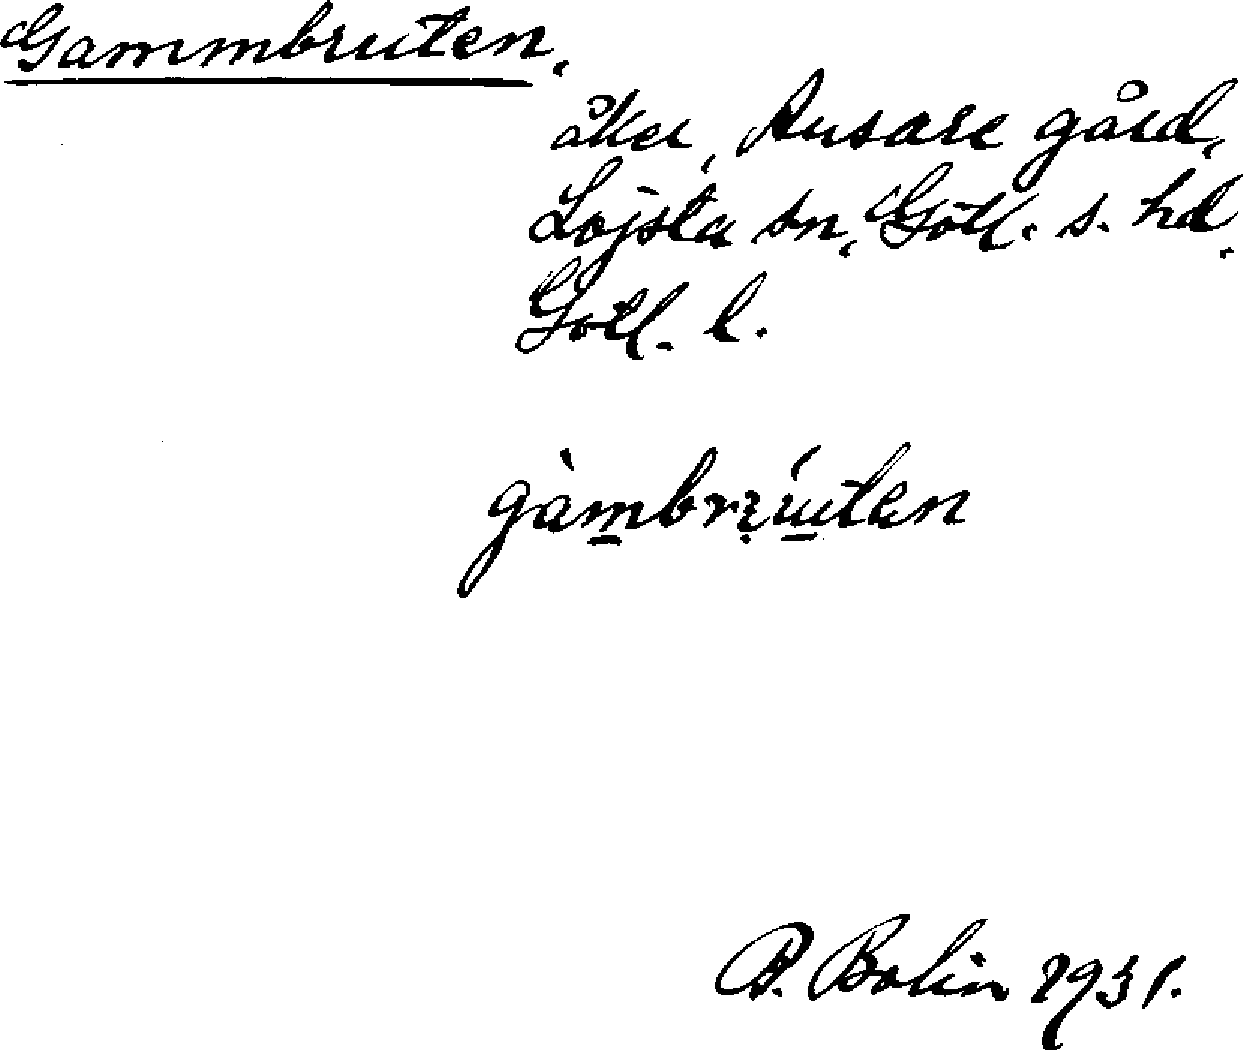 Gammbruten,
åker, Ausare gård,
Lojsta sn, Gotl. s. hd,
Gotl. l.
B. Bolin 1931.